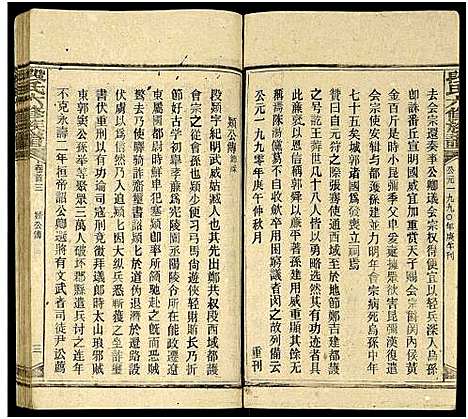 公元一九九〇年庚午刊
去會宗還奏事公卿議會宗權得便宜以輕兵深入烏孫
即誅番丘宣明國威宜加重賞天子賜會宗爵關內侯黃
金百斤是時小昆彌季父卑爰疐擁眾欲害昆彌漢復遣
會宗使安輯與都護孫建並力明年會宗病死烏孫中年
七十五矣城郭諸國爲發喪立祠焉
贊曰自元狩之際張騫始通西域至於地節鄭吉建都護
之號訖王莽世凡十八人皆以勇略選然其有功迹者具
此廉褒以恩信稱郭舜以廉平著孫建用威重顯其餘無
稱焉陳湯儻蕩不自收歛卒用困窮議者閔之故列備云
公元一九九〇年庚午仲秋月 重刊
熲公傳
段熲字紀明武威姑臧人也其先出鄭共叔段西域都護
會宗之從曾孫也熲少便習弓馬尚遊俠輕財賄長乃折
節好古學初舉孝廉爲憲陵園丞陽陵令所在能政遷遼
東屬國都尉時鮮卑犯塞熲即率所領馳赴之既而恐賊
驚去乃使驛騎詐齎璽書詔熲熲於道偽退潛於還路設
伏虜以爲信然乃入追熲熲因大縱兵悉斬獲之坐詐璽
書伏重刑以有功論司寇刑竟徵拜議郎時太山琅邪賊
東郭竇公孫舉等聚眾三萬人破壞郡縣遣兵討之連年
不克永壽二年桓帝詔公卿選將有文武者司徒尹訟薦
卷首三 熲公傳 三